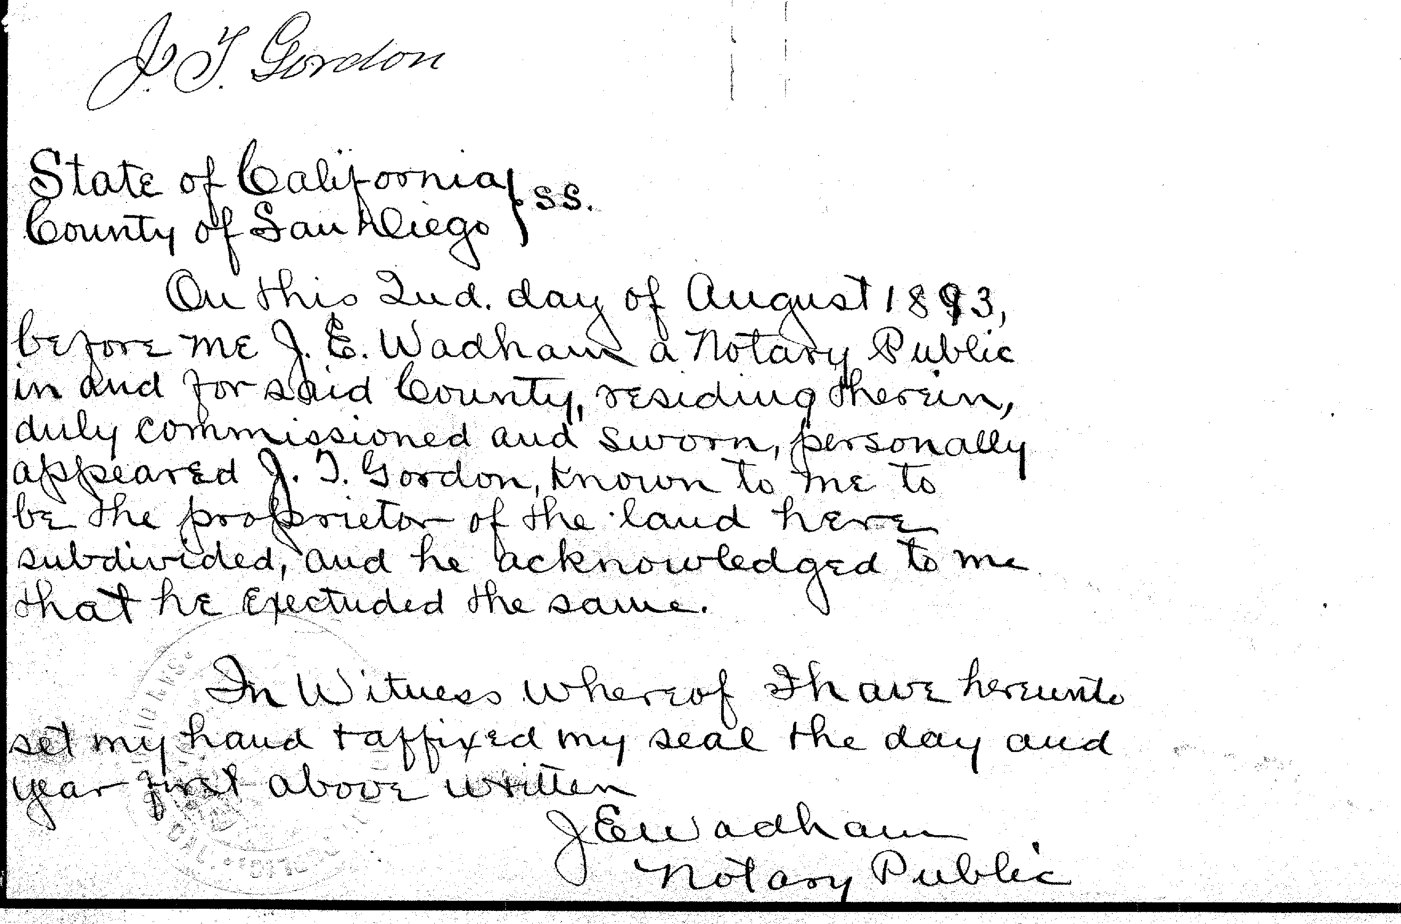 J. T. Gordon
State of California } ss.
County of San Diego
On this 2nd. day of August 1893,
before me J. E. Wadham a Notary Public
in and for said County, residing therein,
duly commissioned and sworn, personally
appeared J. T. Gordon, known to me to
be the proprietor of the land here
subdivided, and he acknowledged to me
that he exectuded the same.
In Witness whereof I have hereunto
set my hand + affixed my seal the day and
year first above written
J E Wadham
Notary Public